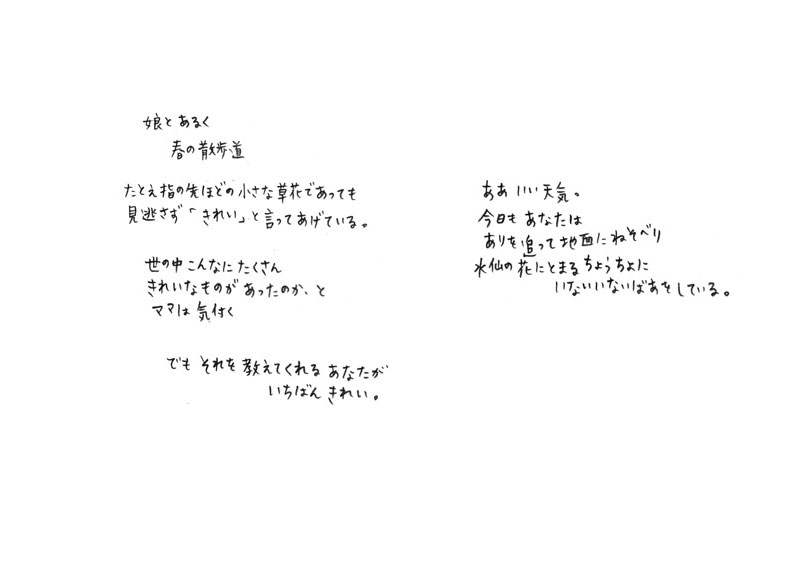 娘とあるく
春の散歩道
たとえ指の先ほどの小さな草花であっても
見逃さず「きれい」と言ってあげている。
世の中こんなにたくさん
きれいなものがあったのか、と
ママは気付く
でもそれを教えてくれるあなたが
いちばんきれい。
ああ いい天気。
今日もあなたは
ありを追って地面にねそべり
水仙の花にとまるちょうちょに
いないいないばあをしている。